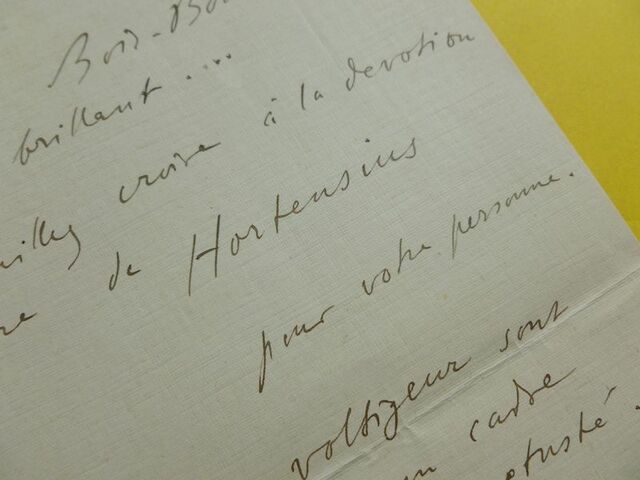 Bois-Bou
brillant....
uillez croire à la devotion
re de Hortensius
pour votre personne.
voltigeur sont
un cadre
vetusté.